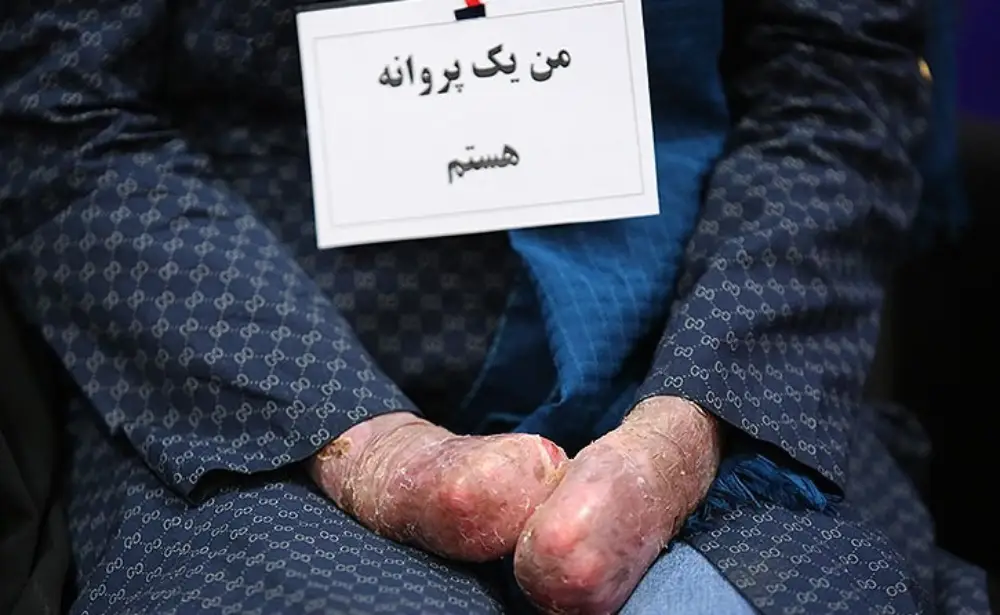 من یک پروانه
هستم